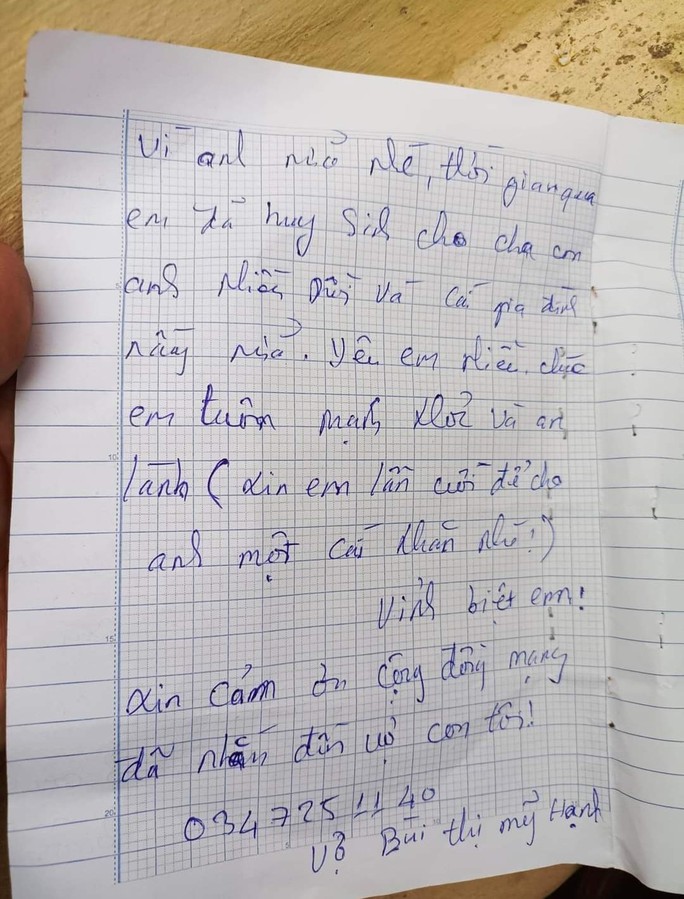 vì anh nữa nhé, thời gian qua
em đã huy sinh cho cha con
anh nhiều rồi và cả gia đình
nữa. Yêu em nhiều, chúc
em luôn mạnh khoẻ và an
lành (xin em lần cuối để cho
anh một cái khăn nhé!)
Vĩnh biệt em!
xin cảm ơn cộng đồng mạng
đã nhắn đến vợ con tôi!
034 725 11 40
Vợ Bùi thị mỹ Hạnh
10
15
20